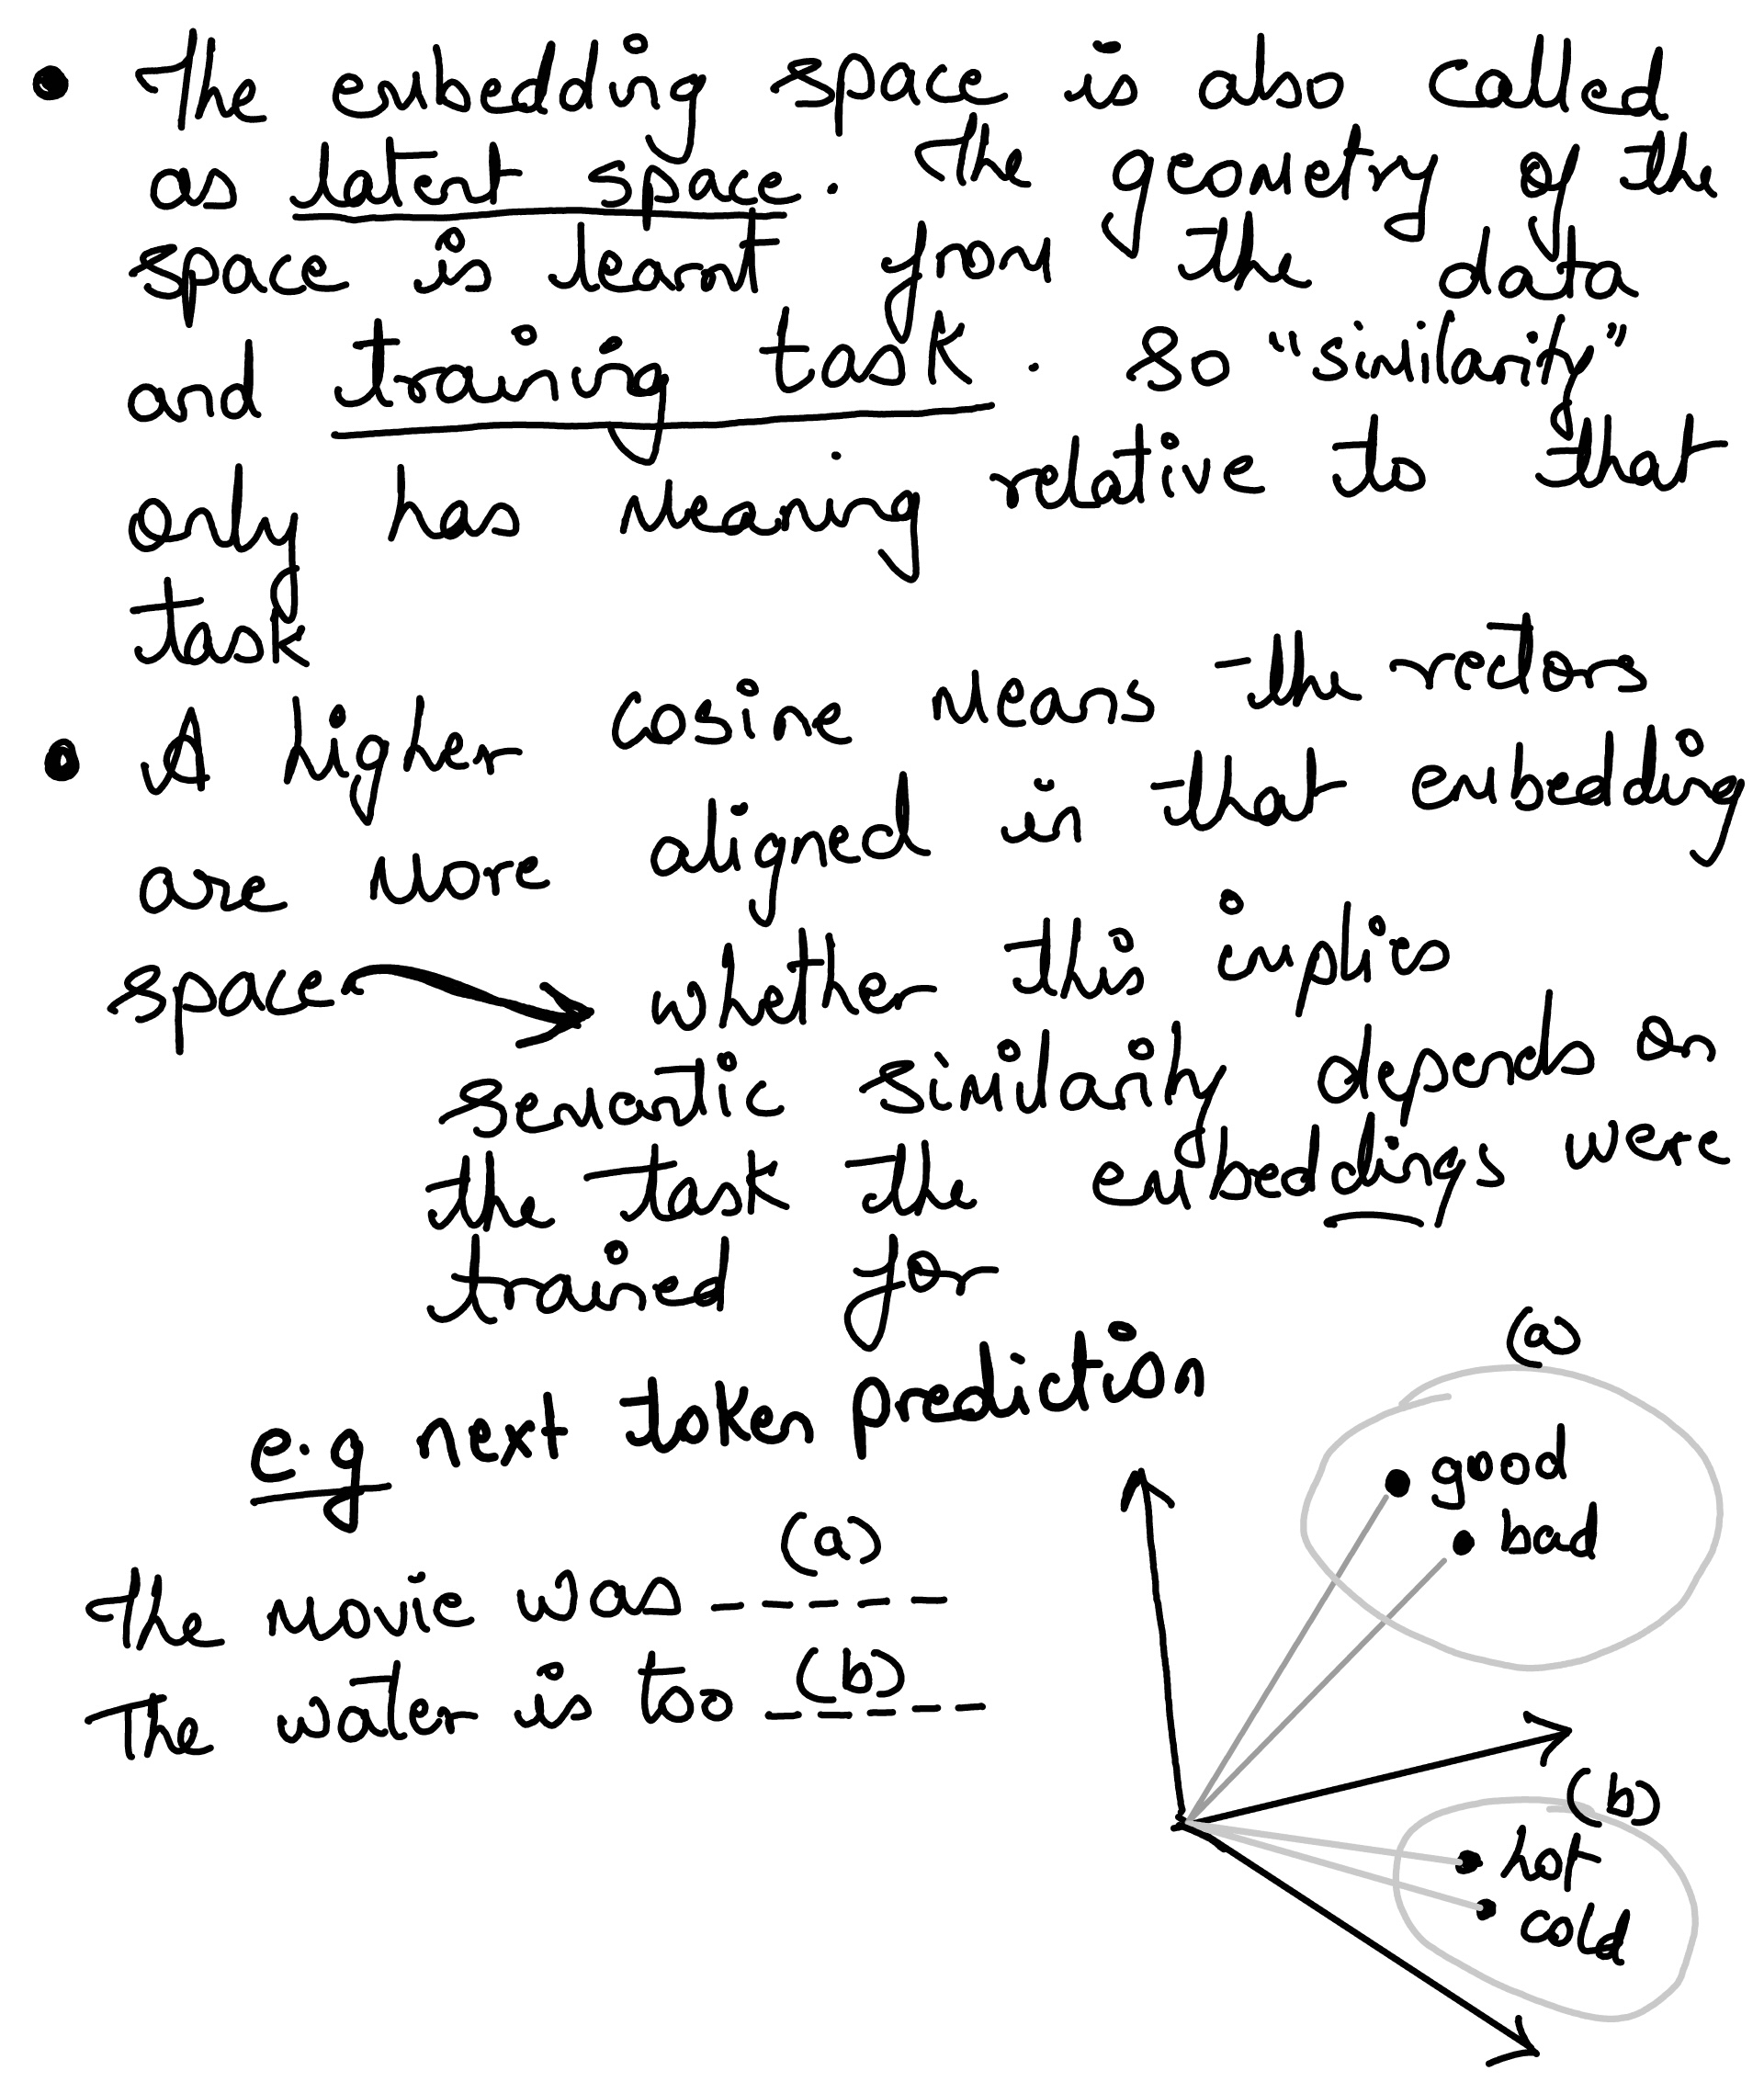 • The embedding space is also called
as latent space. The geometry of the
space is learnt from the data
and training task. So "similarity"
only has meaning relative to that
task
• A higher cosine means the vectors
are more aligned in that embedding
space → whether this implies
semantic similarity depends on
the task the embeddings were
trained for
e.g next token prediction
The movie was (a) -----
The water is too (b) -----
(a)
good
bad
(b)
hot
cold